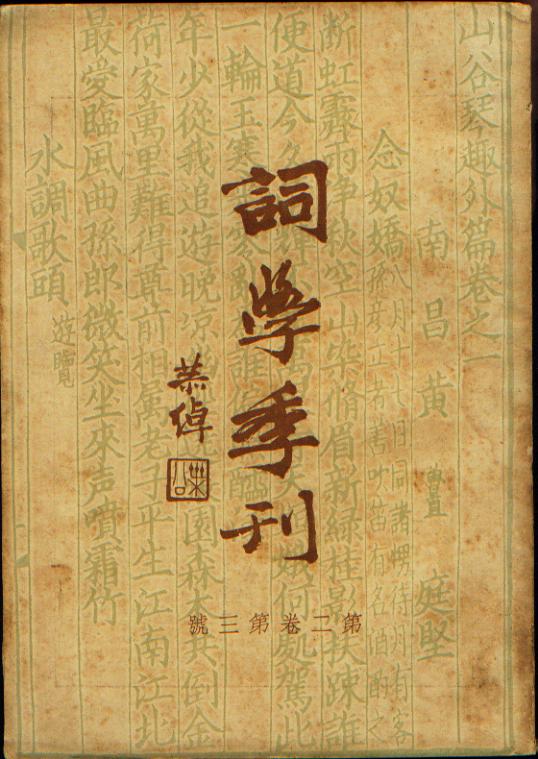 詞學季刊
恭綽
第二卷第三號
山谷琴趣外篇卷之一
南昌黃 庭堅 魯直
念奴嬌 八月十七日同諸甥待月有客
孫彥立者善吹笛有名酒酌之
斷虹霽雨淨秋空山染修眉新綠桂影扶疎誰
便道今夕萬何處駕此
一輪玉寒誰
年少從我追遊晚涼園森木共倒金
荷家萬里難得尊前相屬老子平生江南江北
最愛臨風曲孫郎微笑坐來声噴霜竹
水調歌頭 遊覽